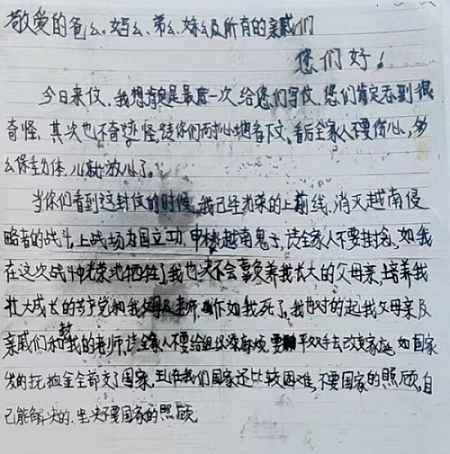 敬爱的爸么。妈么、弟么、妹么及所有的亲戚们
您们好！
今日来仪，我想肯定是最后一次给您们写仪，您们肯定看到很
奇怪，其次也不奇怪，请你们耐心地看下文，看后全家人不要伤心，多
么保重身体，儿就放心了。
当你们看到这封仪的时候，我已经光荣的上前线，消灭越南侵
略者的战斗，上战场为国立功，越南鬼子，请全家人不要挂念，如我
在这次战斗中光荣地牺牲了我也决不会辜负养我长大的父母亲，培养我
壮大成长的共产党和我，如我死了，我也对的起我父母亲及
亲戚们和我的老师，请全家人不要给组织添麻烦，要用双手去改变家庭，如国家
发的抚恤金全部交了国家，现在我们国家还比较困难，不要国家的照顾，自
己能解决的，坚决不要国家的照顾